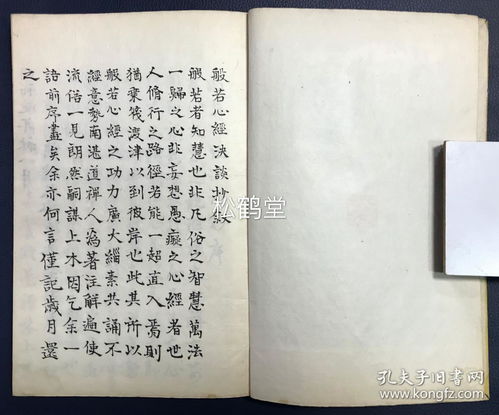 般若心經決談抄叙
般若者知慧也非凡俗之智慧萬法
一歸之心非妄想愚癡之心經者也
人脩行之路徑若能一超直入焉則
猶棄筏渡津以到彼岸也此其所以
般若心經之功力廣大緇素共誦不
經意勢南湛道禅人為著注解遍使
流俗一見朗然嗣謀上木因乞余一
語前序盡矣余亦何言僅記歲月還
之
松鹤堂
孔夫子旧书网
www.kongfz.com